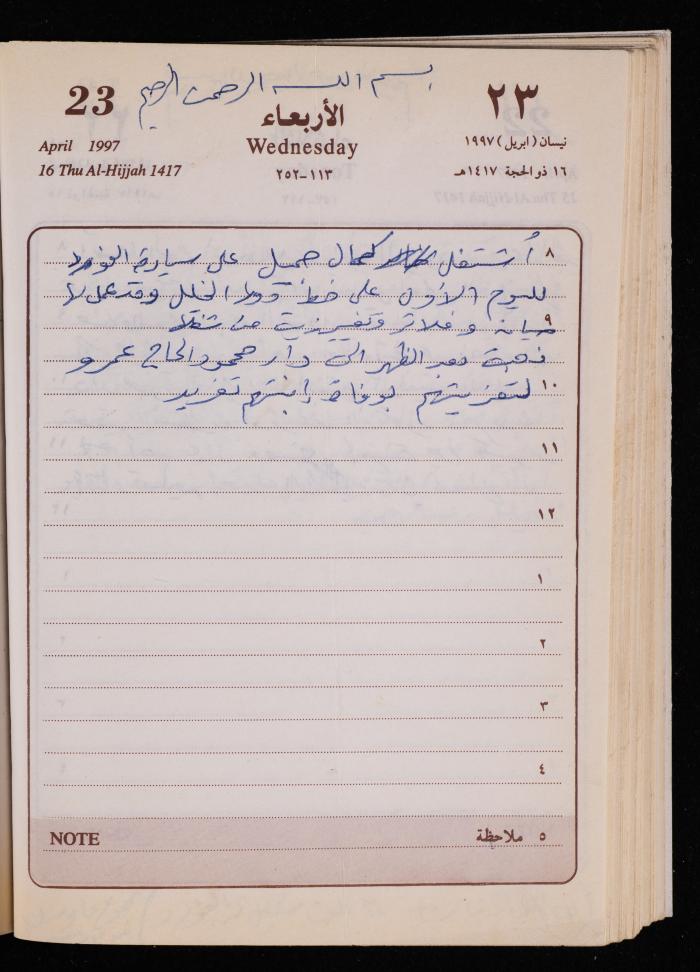 بسم الله الرحمن الرحيم
23
الأربعاء
٢٣
April 1997
Wednesday
نيسان (ابريل) ١٩٩٧
16 Thu Al-Hijjah 1417
١١٣-٢٥٢
١٦ ذو الحجة ١٤١٧هـ
٨ أشتغل كمال جميل على سيارة الفورد
لليوم الأول على خط الخليل وقد عمل لها
٩ صيانة وفلاتر وتغيير زيت
ذهبت بعد الظهر الى دار محمود الحاج عمرو
١٠ لتعزيتهم بوفاة إبنتهم تغريد
١١
١٢
١
٢
٣
٤
NOTE
٥ ملاحظة